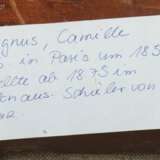 gnus, Camille
in Paris um 185
llte ab 1875 im
en aus. Schüler von